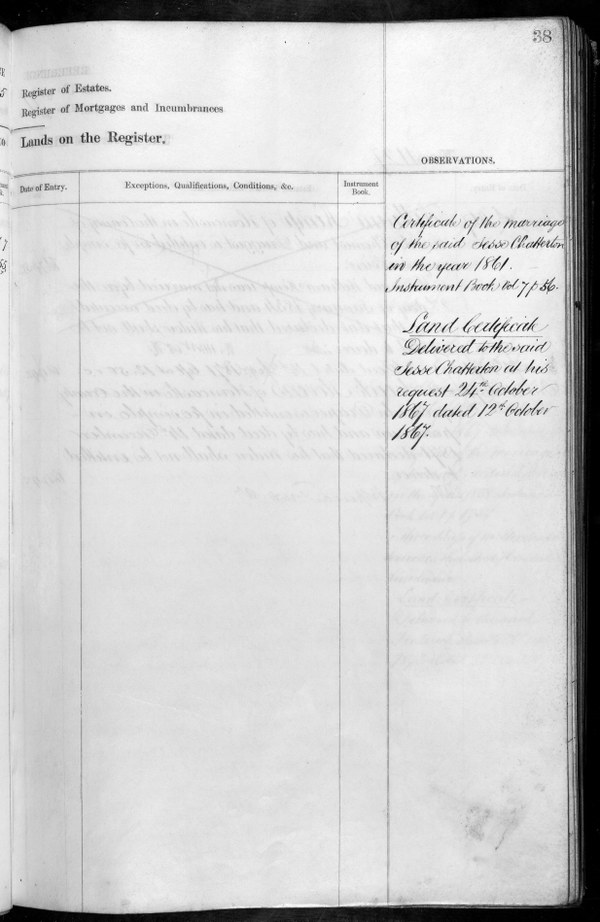 38
Register of Estates.
Register of Mortgages and Incumbrances
Lands on the Register.
OBSERVATIONS.
Date of Entry.
Exceptions, Qualifications, Conditions, &c.
Instrument
Book.
Certificate of the marriage
of the said Jesse Chatterton
in the year 1861.
Instrument Book vol 7 p 56.
Land Certificate
Delivered to the said
Jesse Chatterton at his
request 24th October
1867 dated 12th October
1867.